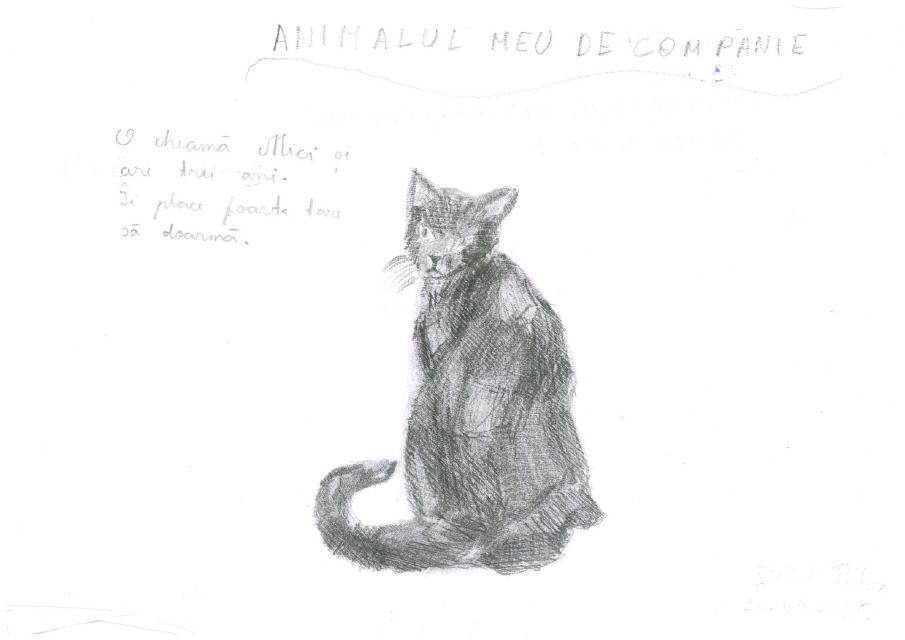 ANIMALUL MEU DE COMPANIE
O cheamă Mici și
are trei ani.
Îi place foarte tare
să doarmă.